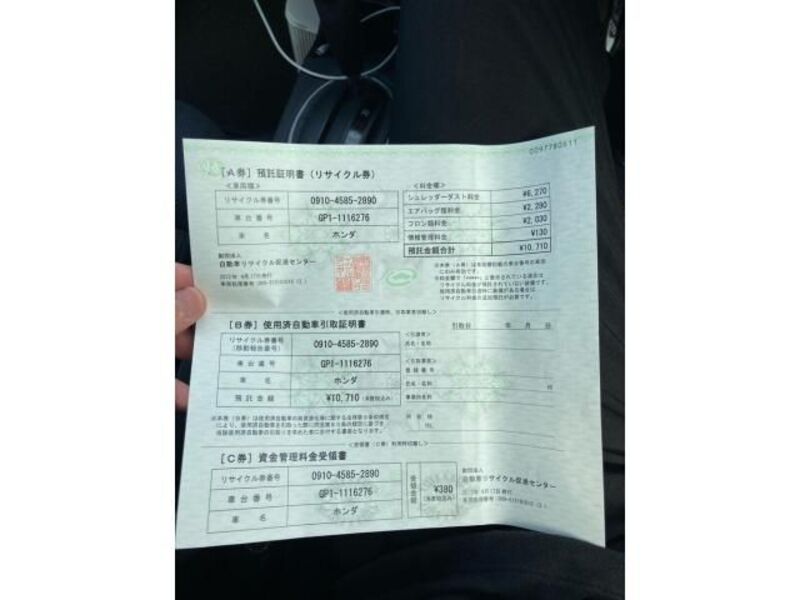 0097780611
[A券] 預託証明書(リサイクル券)
<車両欄>
<料金欄>
リサイクル券番号 0910-4585-2890
車台番号 GP1-1116276
車名 ホンダ
シュレッダーダスト料金 ¥6,270
エアバッグ類料金 ¥2,280
フロン類料金 ¥2,030
情報管理料金 ¥130
預託金額合計 ¥10,710
財団法人
自動車リサイクル促進センター
[B券] 使用済自動車引取証明書
引取日 年 月 日
リサイクル券番号
(移動報告番号) 0910-4585-2890
車台番号 GP1-1116276
車名 ホンダ
預託金額 ¥10,710 (消費税込み)
<引渡者>
氏名・名称
<引取業者>
登録番号
氏名・名称
事業所名称
所在地
TEL
[C券] 資金管理料金受領書
リサイクル券番号 0910-4585-2890
車台番号 GP1-1116276
車名 ホンダ
受領金額 ¥380
(消費税込み)
財団法人
自動車リサイクル促進センター